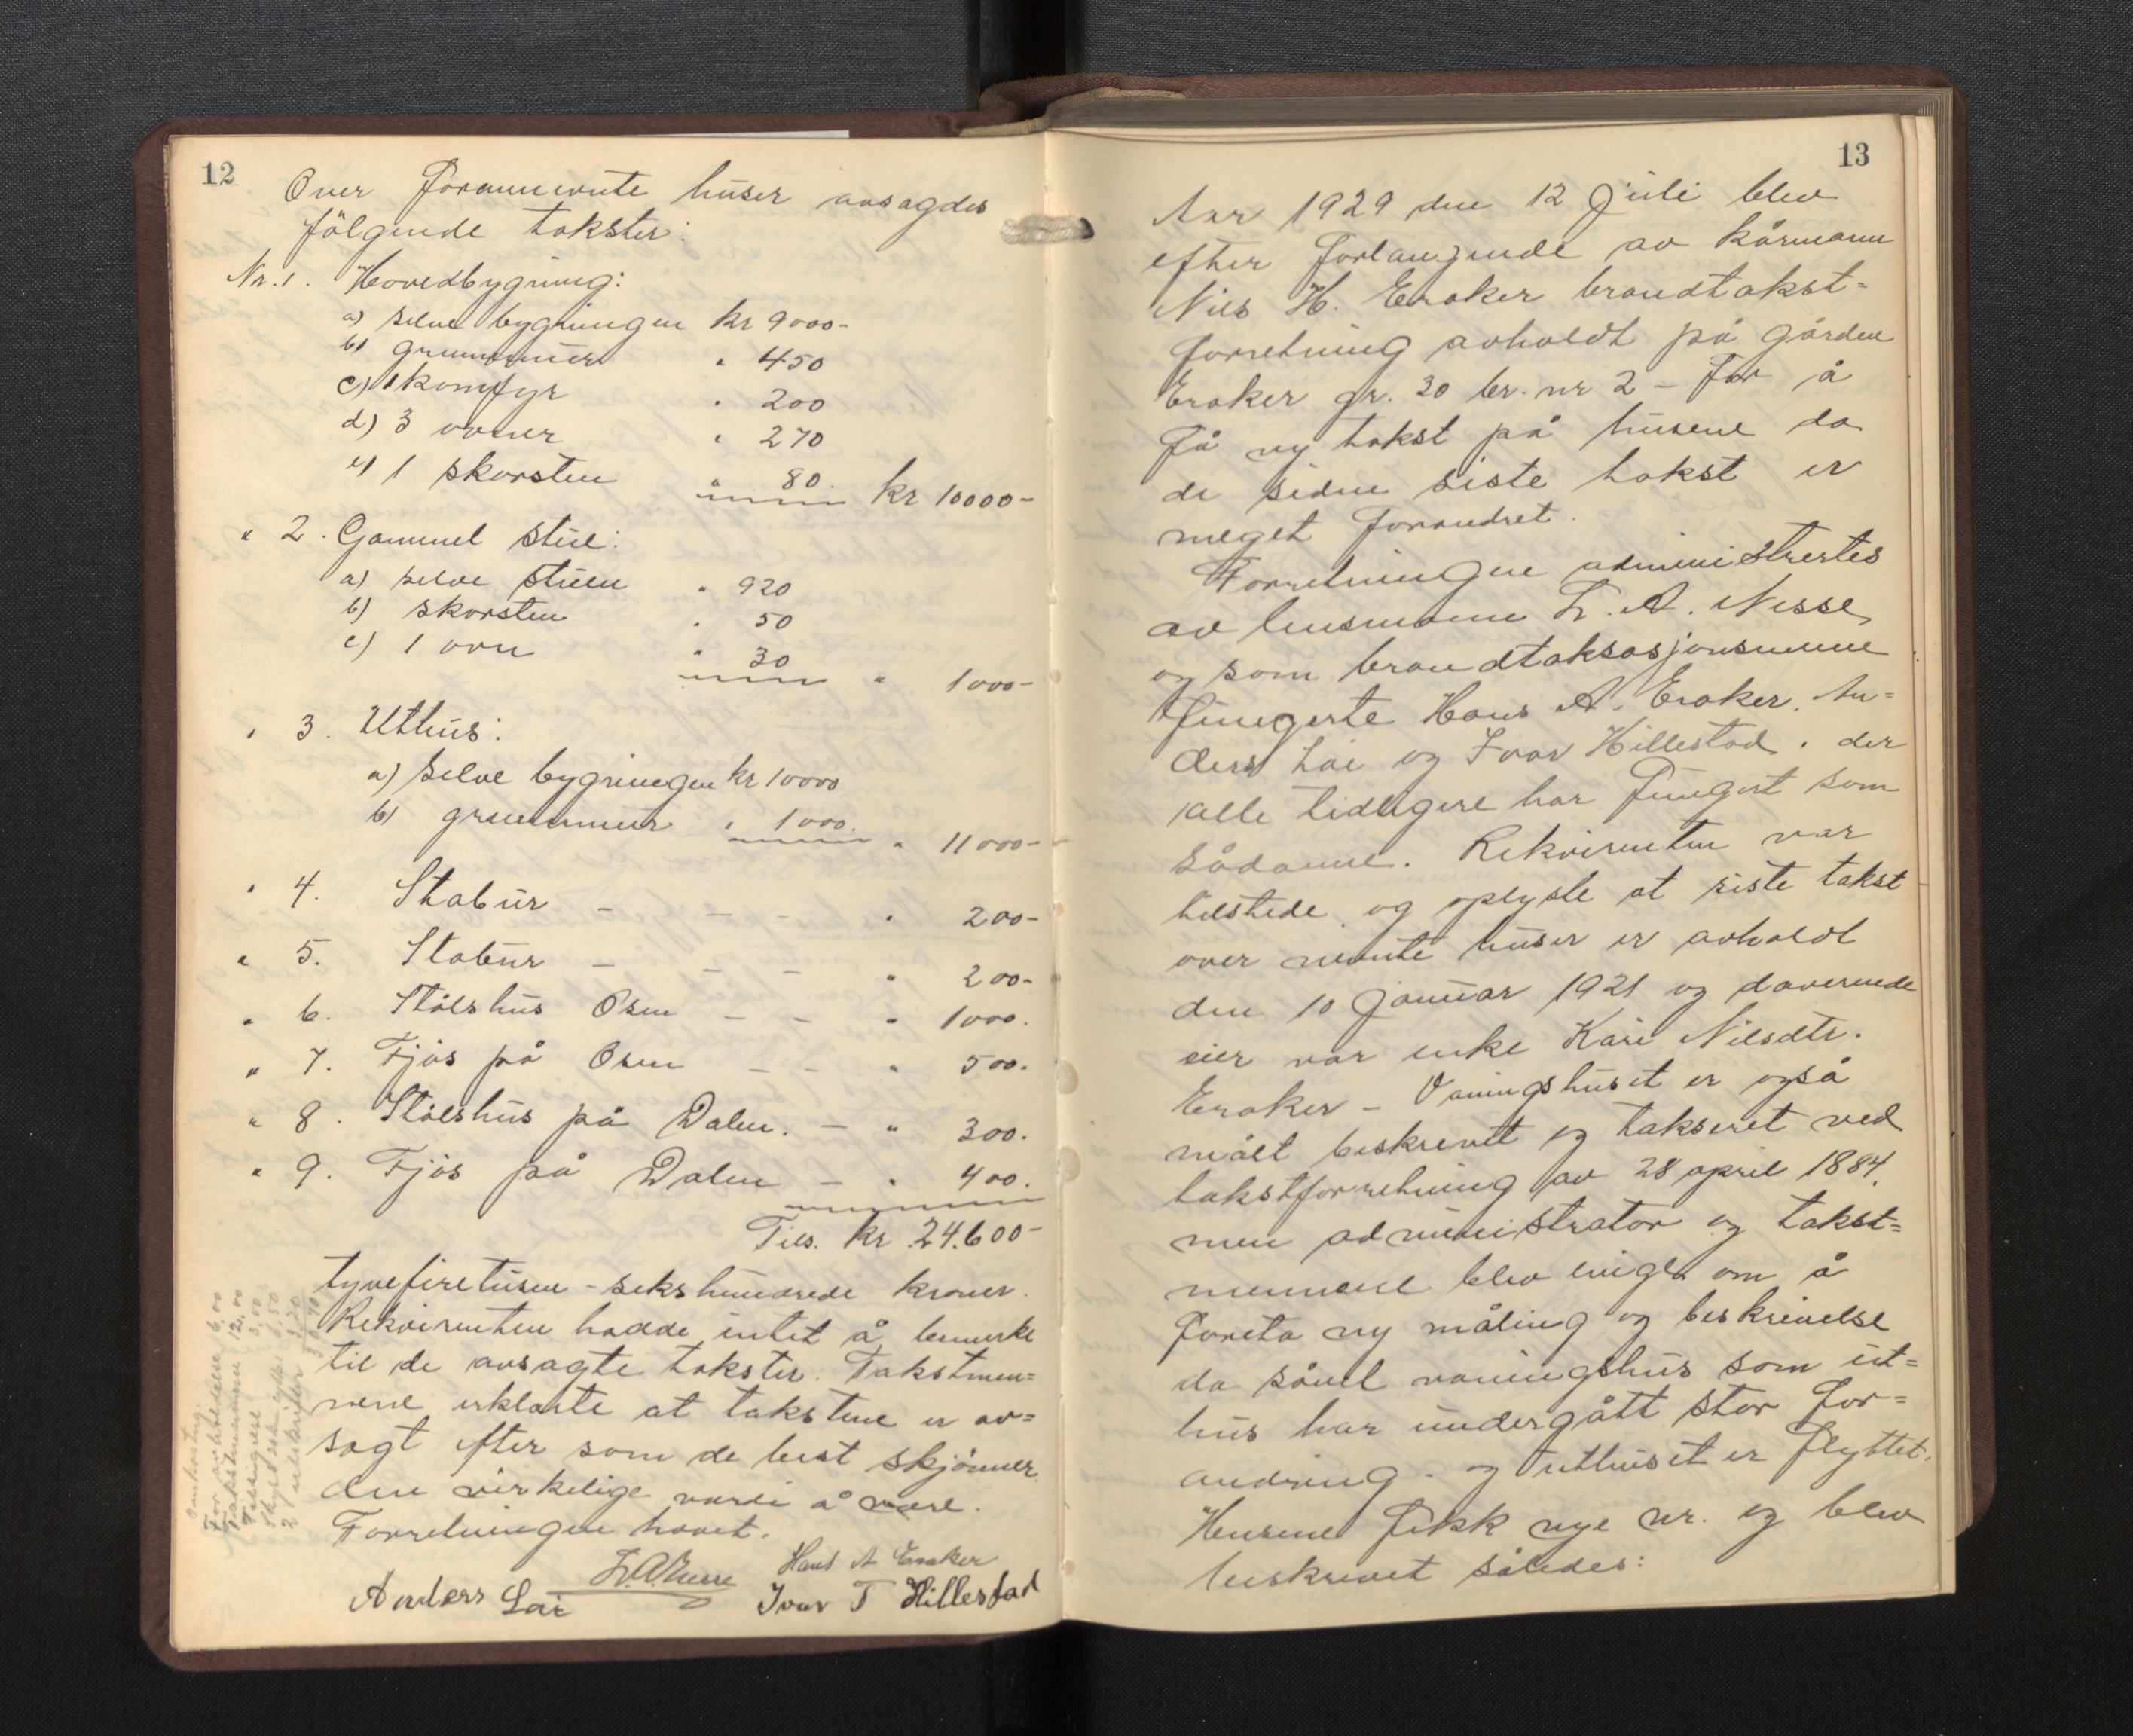 12
Over forannevnte huser avsagdes
følgende takster:
Nr. 1. Hovedbygning:
a) selve bygningen kr 9000-
b) grunnmur " 450
c) 1 komfyr " 200
d) 3 ovner " 270
e) 1 skorsten " 80. kr 10000-
" 2. Gammel stue:
a) selve stuen " 920
b) skorsten " 50
c) 1 ovn " 30 " 1000-
" 3. Uthus:
a) selve bygningen kr 10000
b) grunnmur " 1000. " 11000-
" 4. Stabur - - - " 200-
" 5. Stabur - - - " 200-
" 6. Stølshus Osen - - " 1000.
" 7. Fjøs på Osen - - " 500.
" 8. Stølshus på Dalen. - " 300.
" 9. Fjøs på Dalen - " 400.
Tils. kr. 24.600-
tyvefiretusen-sekshundrede kroner.
Rekvirenten hadde intet å bemerke
til de avsagte takster. Takstmen=
nene erklærte at takstene er av=
sagt efter som de best skjønner
den virkelige verdi å være.
Forretningen hævet.
L.A.Nesse Hans A Eraker
Anders Lai Ivar T Hillestad
For 6,00
Takstmennene 12,00
13
Aar 1929 den 12 juli blev
efter forlangende av kårmann
Nils H. Eraker brandtakst=
forretning avholdt på gården
Eraker gr. 30 br. nr 2 - for å
få ny takst på husene da
de siden siste takst er
meget forandret.
Forretningen administrertes
av lensmann L. A. Nesse,
og som brandtaksasjonsmenn
fungerte Hans A. Eraker, An=
ders Lai og Ivar Hillestad. der
alle tidligere har fungert som
sådanne. Rekvirenten var
tilstede og oplyste at siste takst
over nevnte huser er avholdt
den 10 januar 1921 og daverende
eier var enke Kari Nilsdtr.
Eraker - Vaningshuset er også
målt beskrevet og taksert ved
takstforretning av 28 april 1884.
men administrator og takst=
mennene blev enige om å
foreta ny måling og beskrivelse
da såvel vaningshus som ut=
hus har undergått stor for=
andring - og uthuset er flyttet.
Husene fikk nye nr. og blev
beskrevet således: